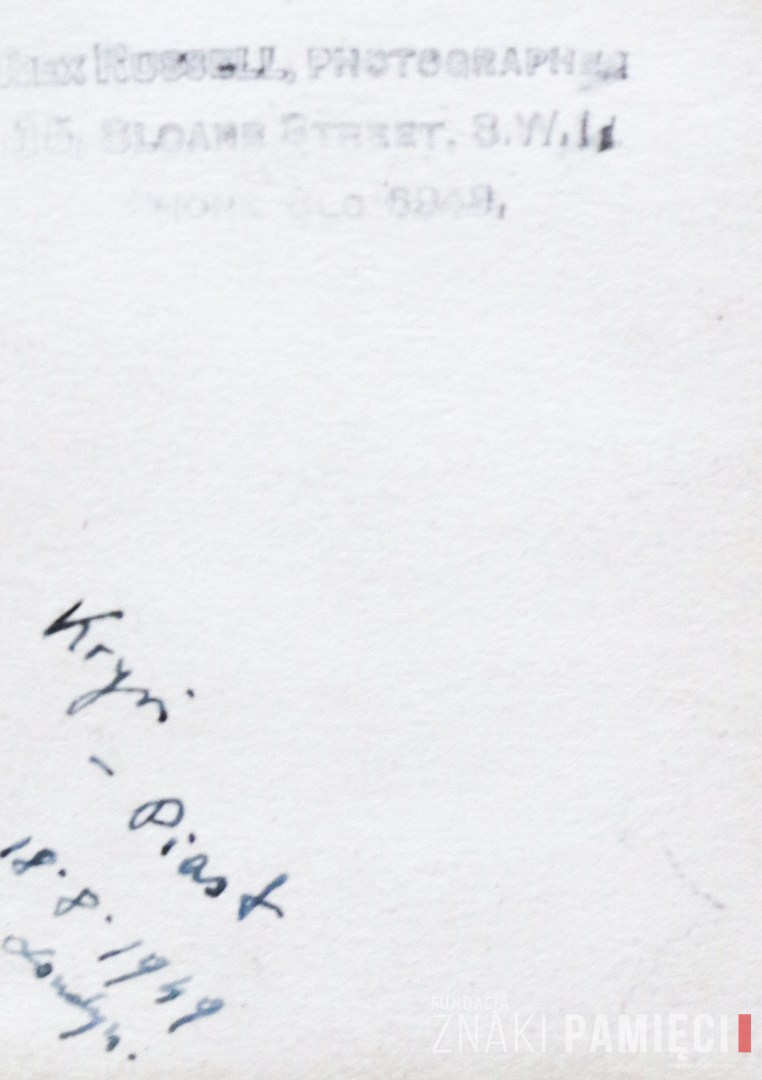 RUSSELL, PHOTOGRAPHER
SLOANE STREET, S.W.1
PHONE SLO 6949,
Krysi
- Piast
18.8.1949
Londyn.
FUNDACJA
ZNAKI PAMIĘCI